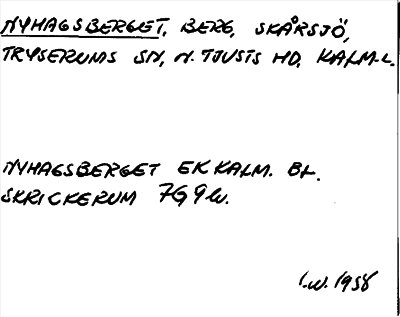 NYHAGSBERGET, BERG, SKÅRSJÖ,
TRYSERUMS SN, N. TJUSTS HD, KALM-L.
NYHAGSBERGET EK KALM. BL.
SKRICKERUM 7G 9b.
I.W. 1958